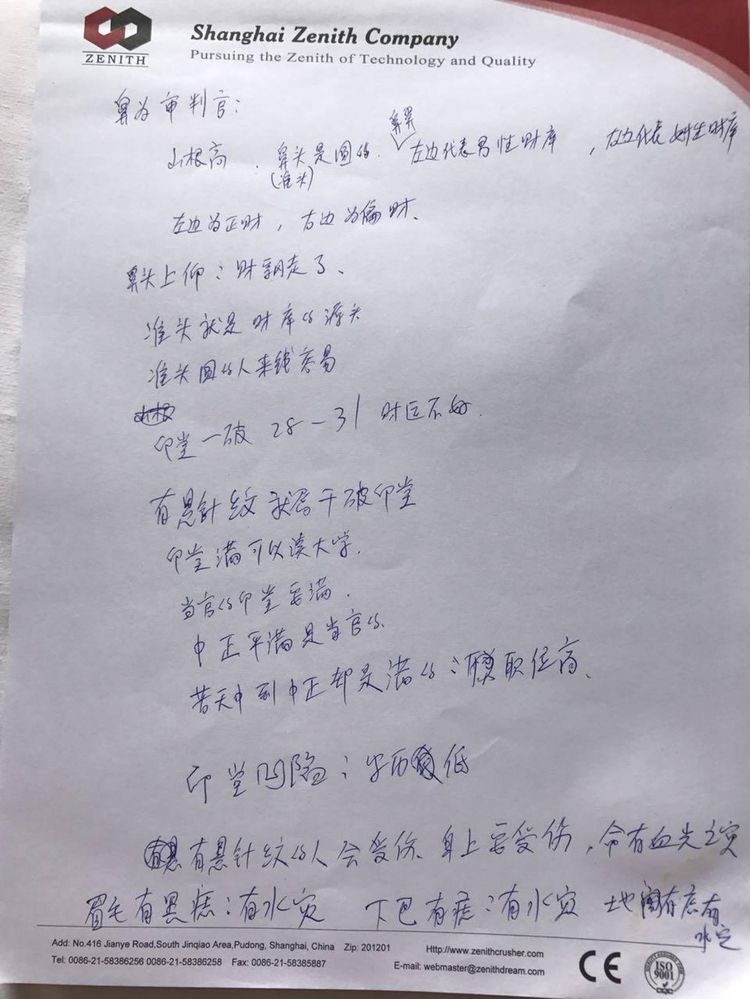 ZENITH
Shanghai Zenith Company
Pursuing the Zenith of Technology and Quality
鼻为审判官：
山根高．鼻头是圆的．鼻翼左边代表男性财库，右边代表女性财库
(准头)
左边为正财，右边为偏财．
鼻头上仰：财翻走了、
准头就是财库的源头
准头圆的人来钱容易
印堂一破 28－31 财运不好．
有悬针纹就属于破印堂
印堂满可以读大学．
当官的印堂要满．
中正平满是当官的．
若天中到中正都是满的：职位高、
印堂凹陷：学历低
有悬针纹的人会受伤、身上要受伤，命有血光之灾
眉毛有黑痣：有水灾 下巴有痣：有水灾 地阁有痣有水灾
Add: No.416 Jianye Road,South Jinqiao Area,Pudong, Shanghai, China Zip: 201201 Http://www.zenithcrusher.com
Tel: 0086-21-58386256 0086-21-58386258 Fax: 0086-21-58385887 E-mail: webmaster@zenithdream.com
CE
ISO 9001